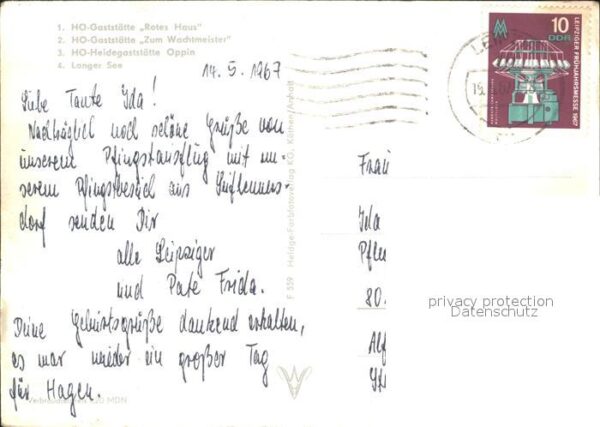 1. HO-Gaststätte „Rotes Haus"
2. HO-Gaststätte „Zum Wachtmeister"
3. HO-Heidegaststätte Oppin
4. Langer See
14. 5. 1967
Liebe Tante Ida!
Nachträglich noch schöne Grüße von
unserem Pfingstausflug mit un-
serem Pfingstbesuch aus Seifhenners-
dorf senden Dir
alle Leipziger
und Pate Frida.
Deine Geburtsgrüße dankend erhalten,
es war wieder ein großer Tag
für Hagen.
F 559 Heldge-Farbfotoverlag KG, Köthen/Anhalt
MDN
10
DDR
LEIPZIGER FRÜHJAHRSMESSE 1967
Frau
Ida
80
privacy protection
Datenschutz